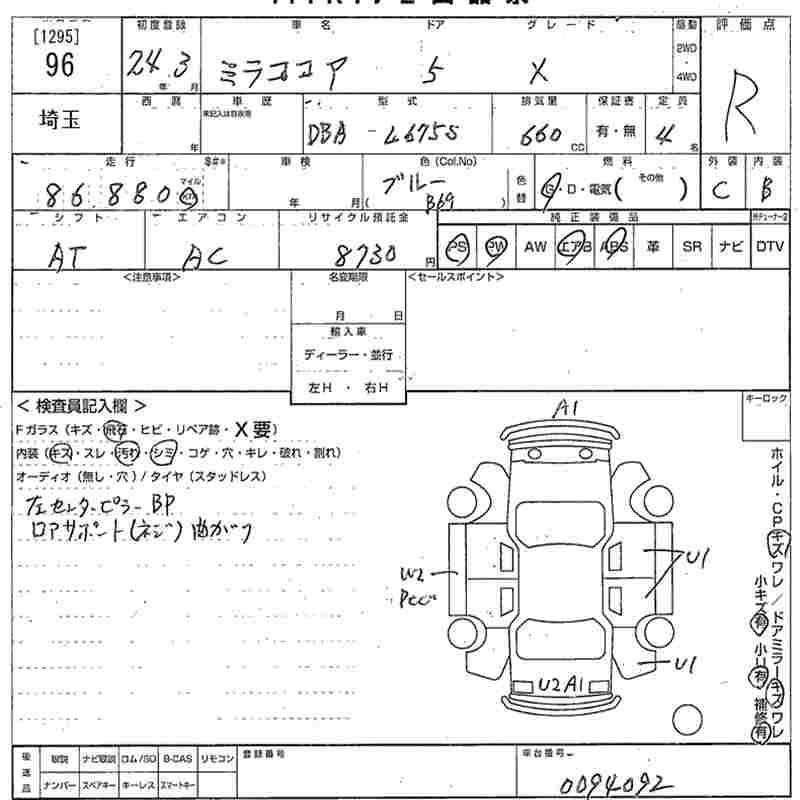 [1295]
96
初度登録 車名 ドア グレード 駆動 評価点
24年3月 ミラココア 5 X 2WD・4WD R
埼玉
西暦 車歴 型式 排気量 保証書 定員
年 未記入は自家用 DBA-L675S 660CC 有・無 4名
走行 車検 色(Col.No) 燃料 外装 内装
86,880 マイル km 年 月 ブルー ( B69 ) 色替 G・D・電気( その他 ) C B
シフト エアコン リサイクル預託金 純正装備品
AT AC 8730円 PS PW AW エアB ABS 革 SR ナビ DTV
<注意事項> 名変期限 <セールスポイント>
月 日
輸入車
ディーラー・並行
左H・右H
<検査員記入欄> キーロック
Fガラス(キズ・飛石・ヒビ・リペア跡・X要)
内装(キズ・スレ・汚れ・シミ・コゲ・穴・キレ・破れ・割れ)
オーディオ(無し・穴)/タイヤ(スタッドレス)
左センターピラーBP
ロアサポート(ネジ)曲がり
A1
U1
W2
U1
U2A1
ホイル・CPキズワレ/ドアミラーキズワレ
小キズ有 小凹有 補修有
後送品 取説 ナビ取説 ロム/SD B-CAS リモコン 登録番号 車台番号
ナンバー スペアキー キーレス スマートキー 0094092